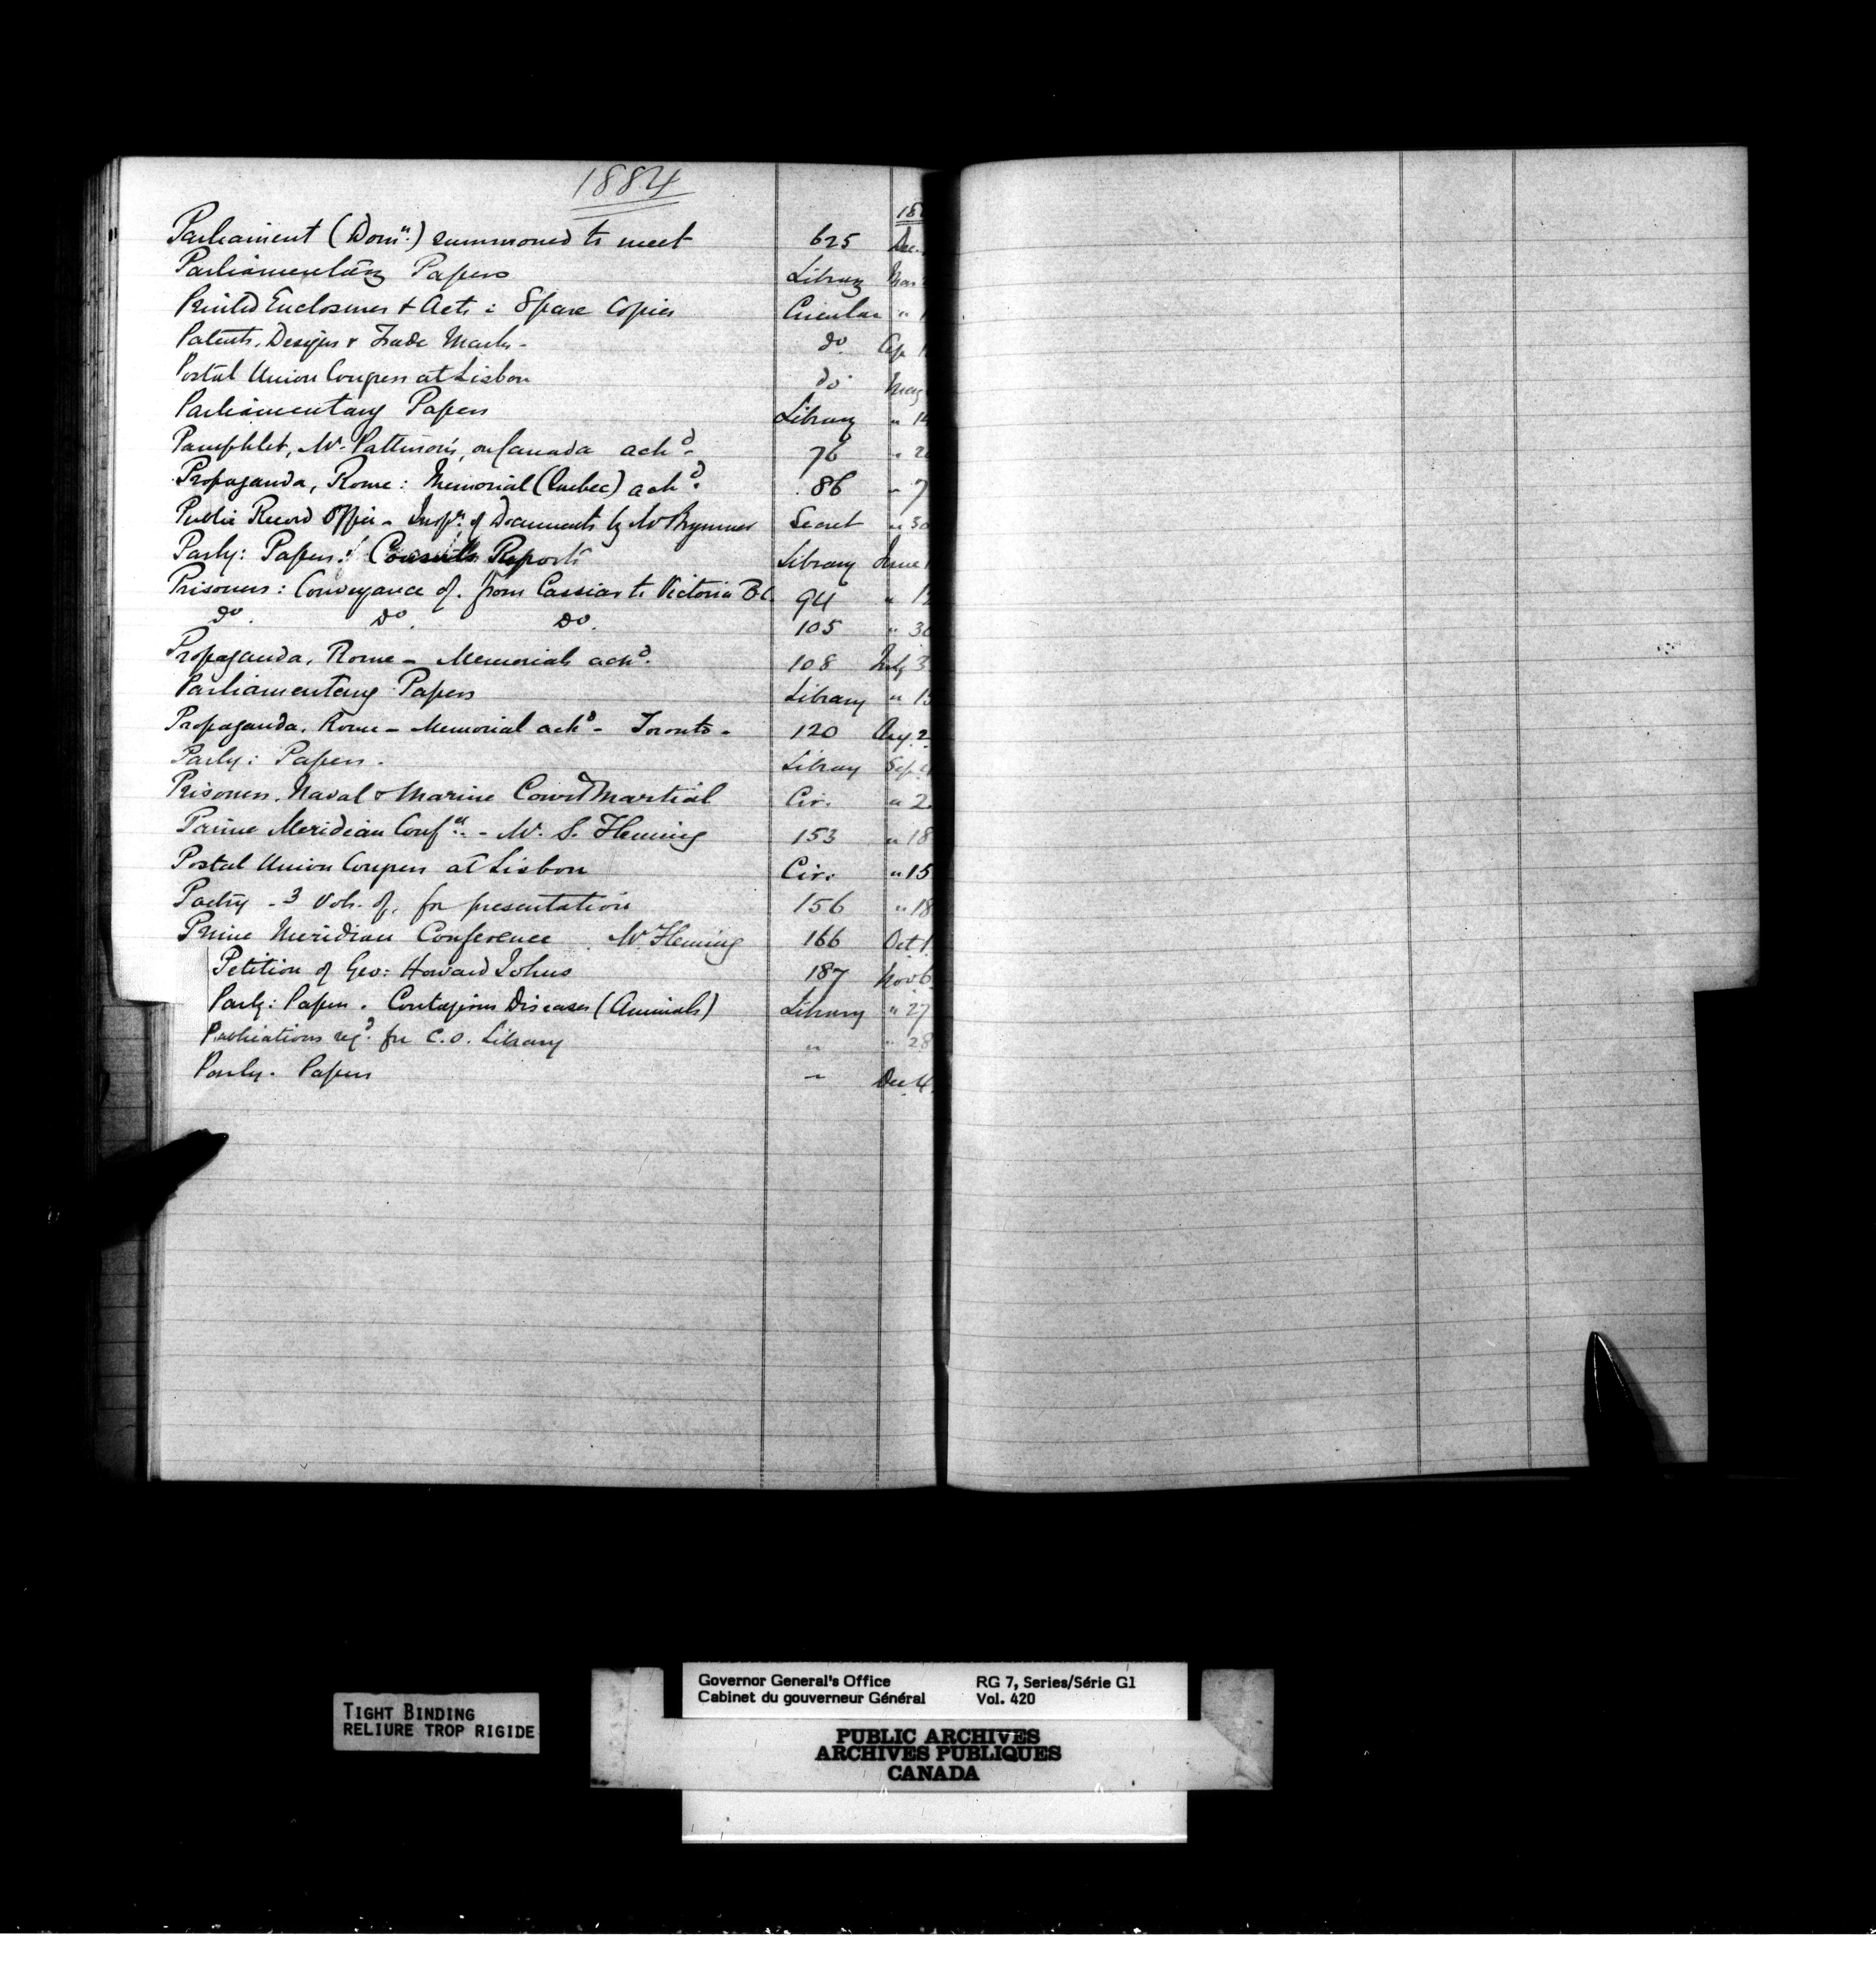 1884
18
Parliament (Domn.) summoned to meet 625 Dec.
Parliamentary Papers Library Mar
Printed Enclosures & Acts: Spare Copies Circular " 1
Patents, Designs & Trade Marks - do. Ap 1
Postal Union Congress at Lisbon do. May
Parliamentary Papers Library " 14
Pamphlet, Mr. Pattinson's, on Canada ackd. 76 " 2
Propaganda, Rome: Memorial (Quebec) ackd. 86 " 7
Public Record Office - Inspn. of Documents by Mr Brymner Secret " 30
Parly: Papers: Consuls Reports Library June 1
Prisoners: Conveyance of. from Cassiar to Victoria B.C. 94 " 1
do. do. do. 105 " 30
Propaganda, Rome - Memorials ackd. 108 July 3
Parliamentary Papers Library " 15
Propaganda, Rome - Memorial ackd - Toronto - 120 Aug. 2
Parly: Papers. Library Sep.
Prisoners, Naval & Marine Court Martial Cir. " 2
Prime Meridian Confce. - Mr. S. Fleming 153 " 18
Postal Union Congress at Lisbon Cir. " 15
Poetry - 3 Vols. of, for presentation 156 " 18
Prime Meridian Conference Mr Fleming 166 Oct. 1
Petition of Geo: Howard Johns 187 Nov 6
Parly: Papers. Contagious Diseases (Animals) Library " 27
Publications reqd. for C.O. Library " " 28
Parly. Papers " Dec 4
TIGHT BINDING
RELIURE TROP RIGIDE
Governor General's Office RG 7, Series/Série G1
Cabinet du gouverneur Général Vol. 420
PUBLIC ARCHIVES
ARCHIVES PUBLIQUES
CANADA